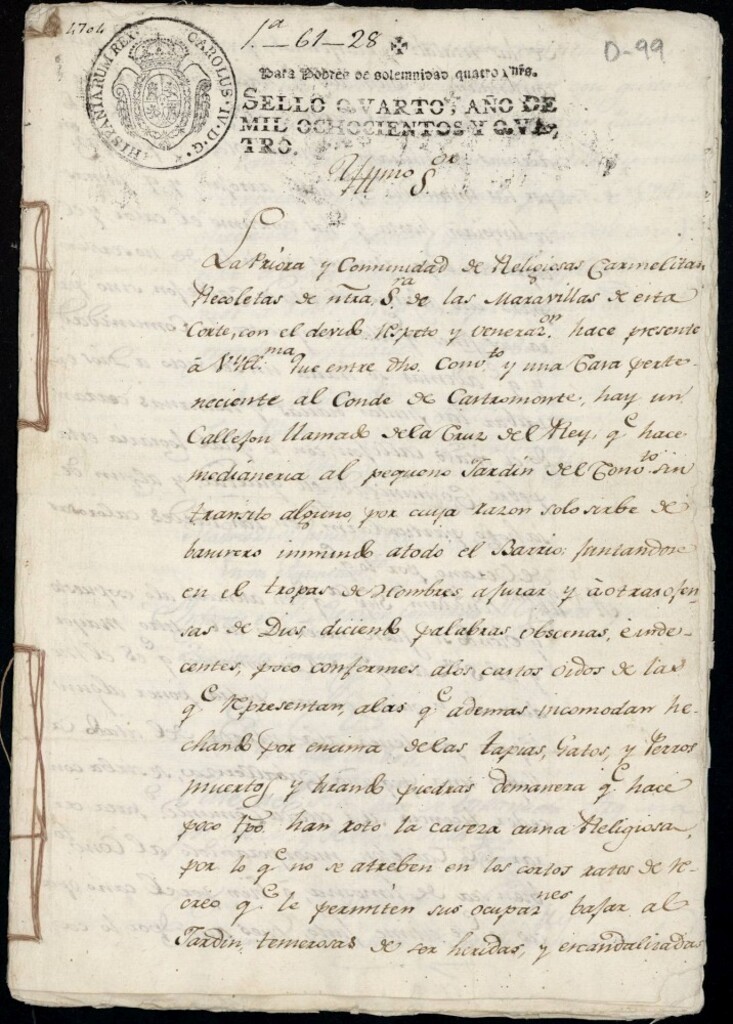 4704
1.ª - 61 - 28
D-99
HISPANIARUM REX. CAROLUS. IV. D. G.
Para Pobres de solemnidad quatro mrs.
SELLO QVARTO, AÑO DE
MIL OCHOCIENTOS Y QVA,
TRO.
Yllmo S.or
La Priora y Comunidad de Religiosas Carmelitas
Recoletas de ñtra S.ra de las Maravillas de esta
Corte, con el devido respeto y veneraz.on hace presente
á V.Yll.ma que entre dho. Comv.to y una Casa perte-
neciente al Conde de Castromonte, hay un
Callejon llamado de la Cruz del Rey, q.e hace
medianeria al pequeno Jardin del Conv.to sin
transito alguno, por cuia razon solo sirbe de
basurero inmundo atodo el Barrio; juntandose
en el tropas de Hombres ajurar y áotras ofen
sas de Dios, diciendo palabras obscenas, é inde-
centes, poco conformes alos castos oidos de las
q.e representan, alas q.e ademas incomodan he-
chando por encima delas tapias, Gatos, y Perros
muertos, y tirando piedras demanera q.e hace
poco tpo. han roto la caveza auna Religiosa,
por lo q.e no se atreben en los cortos ratos de re-
creo q.e le permiten sus ocupaz.nes bajar al
Jardin, temerosas de ser heridas, y escandalizadas